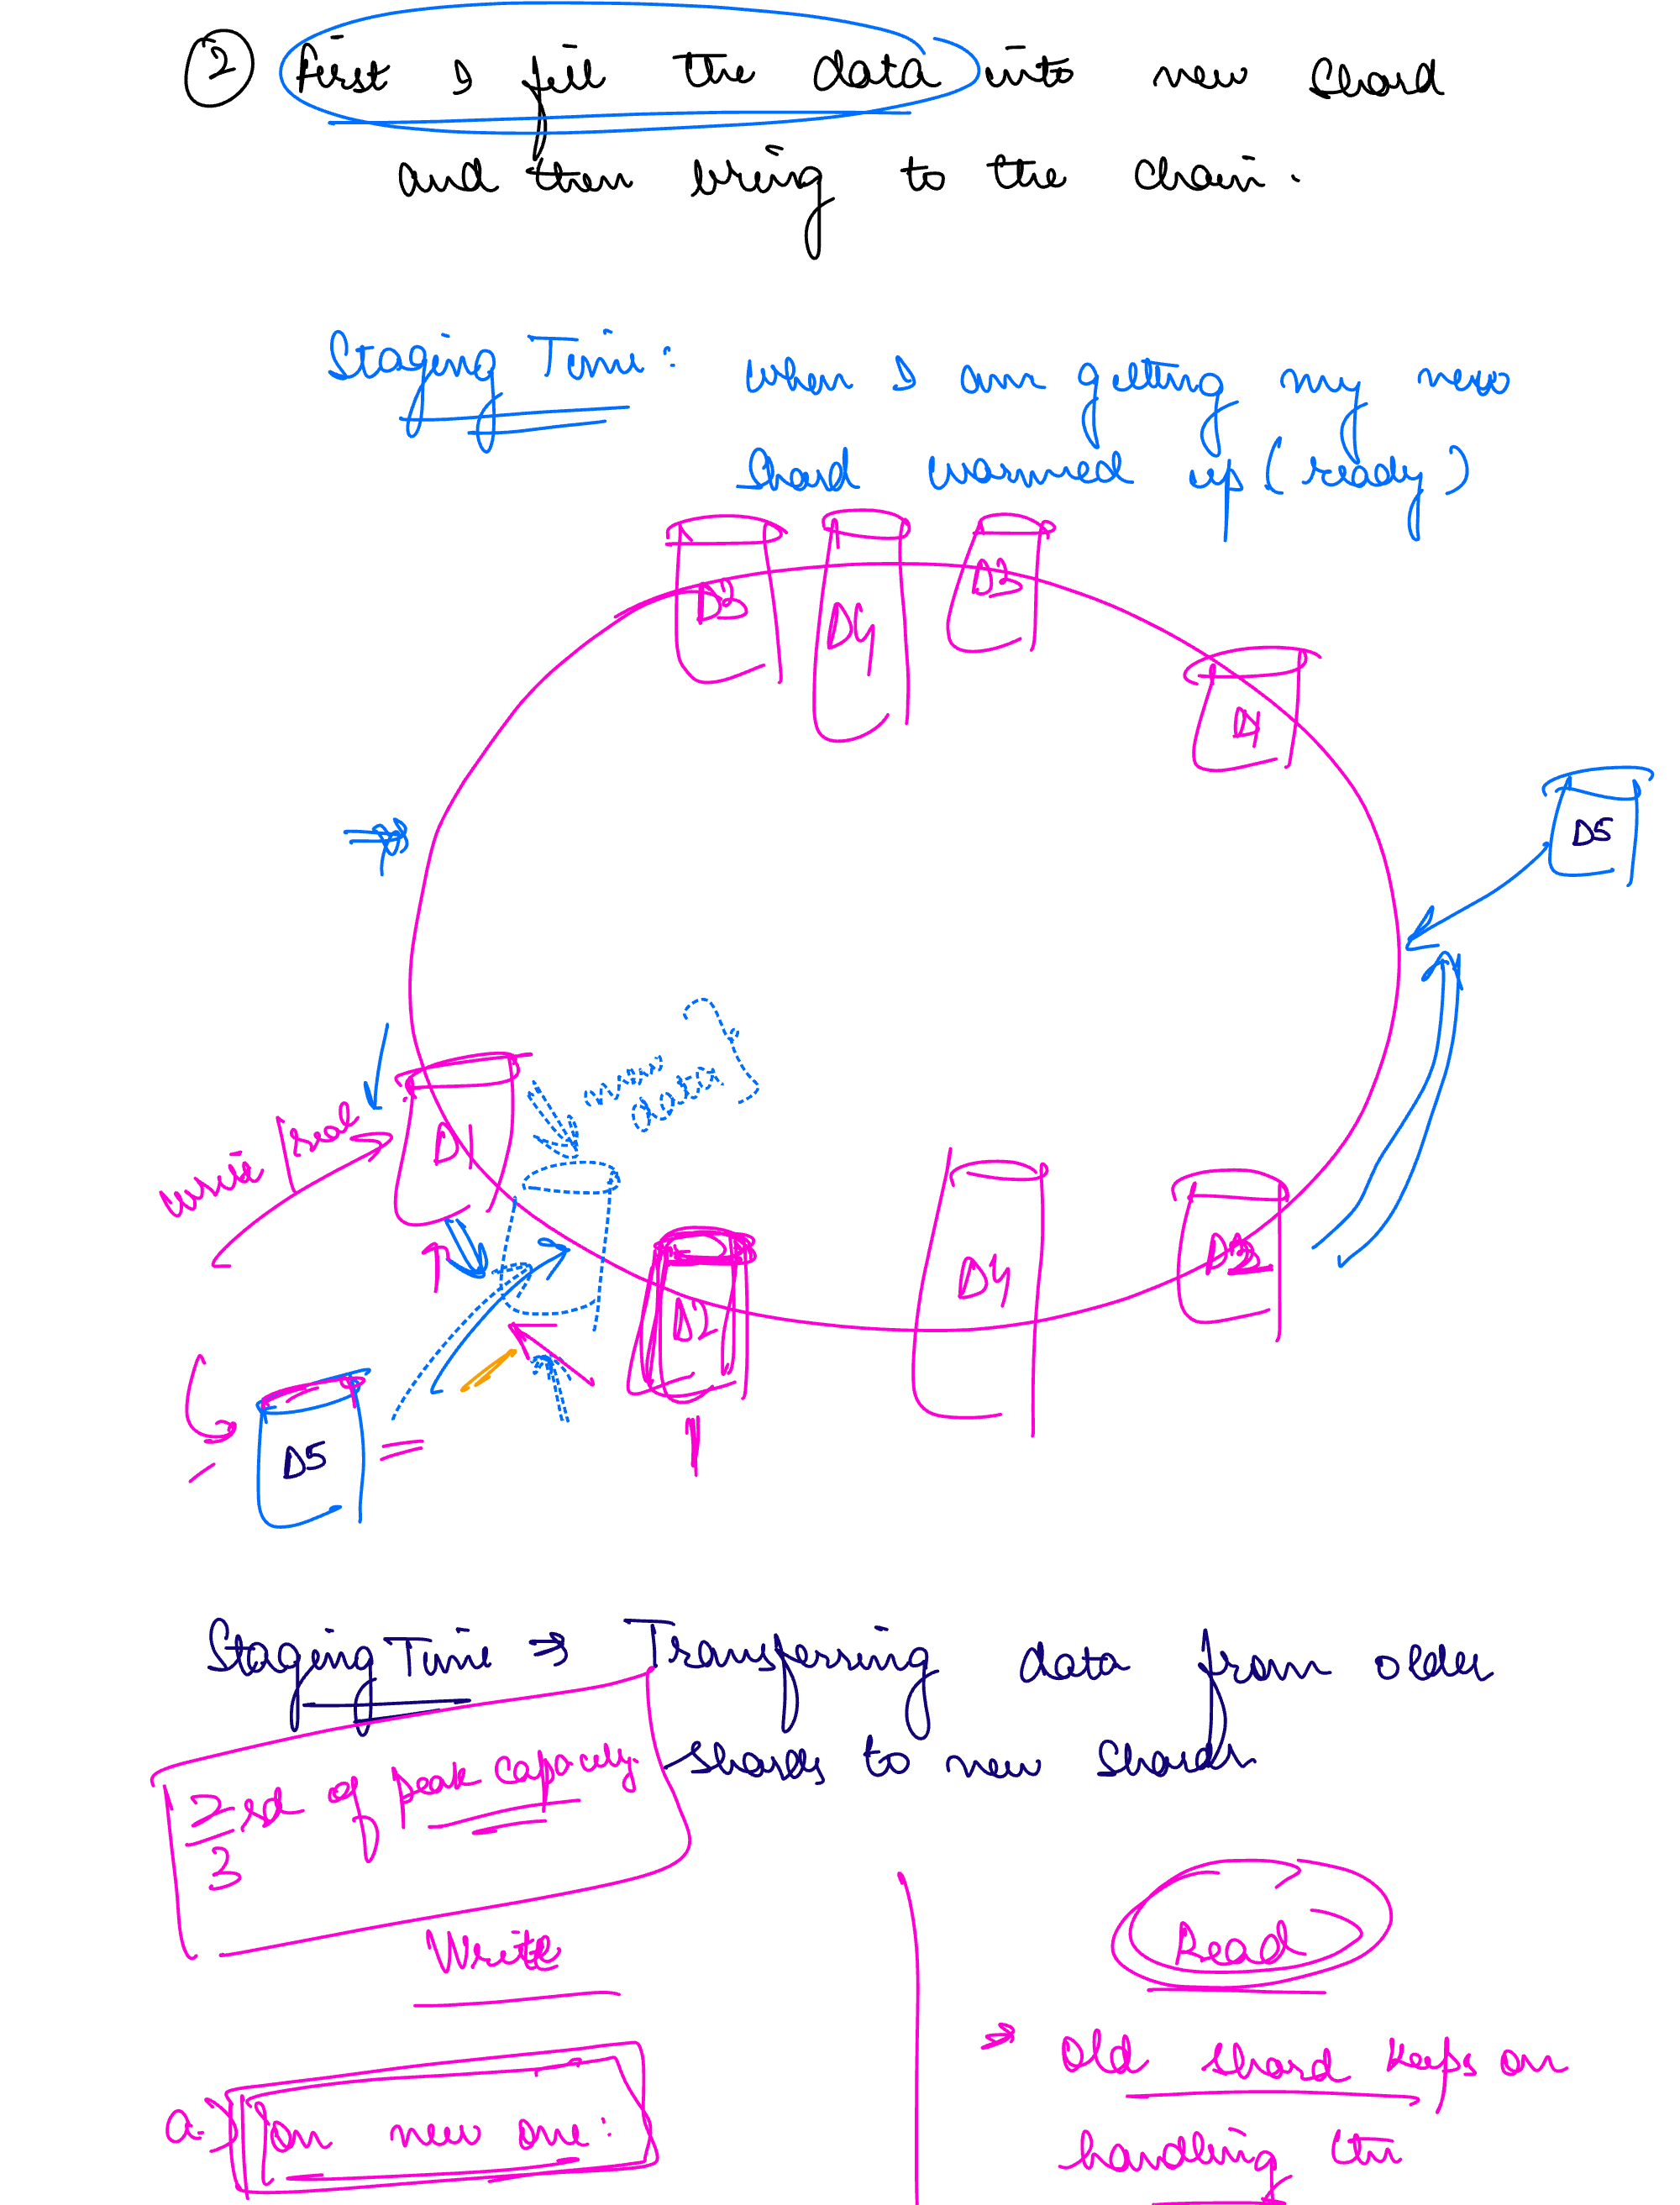 ② First I fill the data into new Shard
and then bring to the chain.
Staging Time: when I am getting my new
Shard warmed up (ready)
D3 D4 D2
D1
D5
write/read
D1
D2
D4
D5
Staging Time ⇒ Transferring data from older
shards to new Shards
2/3rd of peak capacity.
Write
Read
→ Old shard keeps on
a.) On new one:
handling the